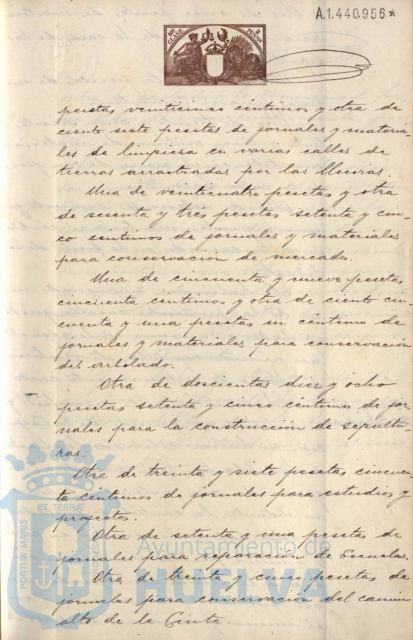 A.1.440.956*
pesetas veinticinco céntimos y otra de
ciento siete pesetas de jornales y materia-
les de limpieza en varias calles de
tierras arrastradas por las lluvias.
Una de veinticuatro pesetas y otra
de sesenta y tres pesetas setenta y cin-
co céntimos de jornales y materiales
para conservacion de mercados.
Una de cincuenta y nueve pesetas
cincuenta céntimos y otra de ciento cin-
cuenta y una pesetas un céntimo de
jornales y materiales para conservación
del arbolado.
Otra de doscientas diez y ocho
pesetas setenta y cinco céntimos de jor-
nales para la construcción de sepultu-
ras.
Otra de treinta y siete pesetas cincuen-
ta céntimos de jornales para estudios y
proyectos.
Otra de setenta y una pesetas de
jornales para reparación de Escuelas.
Otra de treinta y cinco pesetas de
jornales para conservación del camino
alto de la Cinta.
PORTUS MARIS
ET TERRÆ
Ayuntamiento de
HUELVA